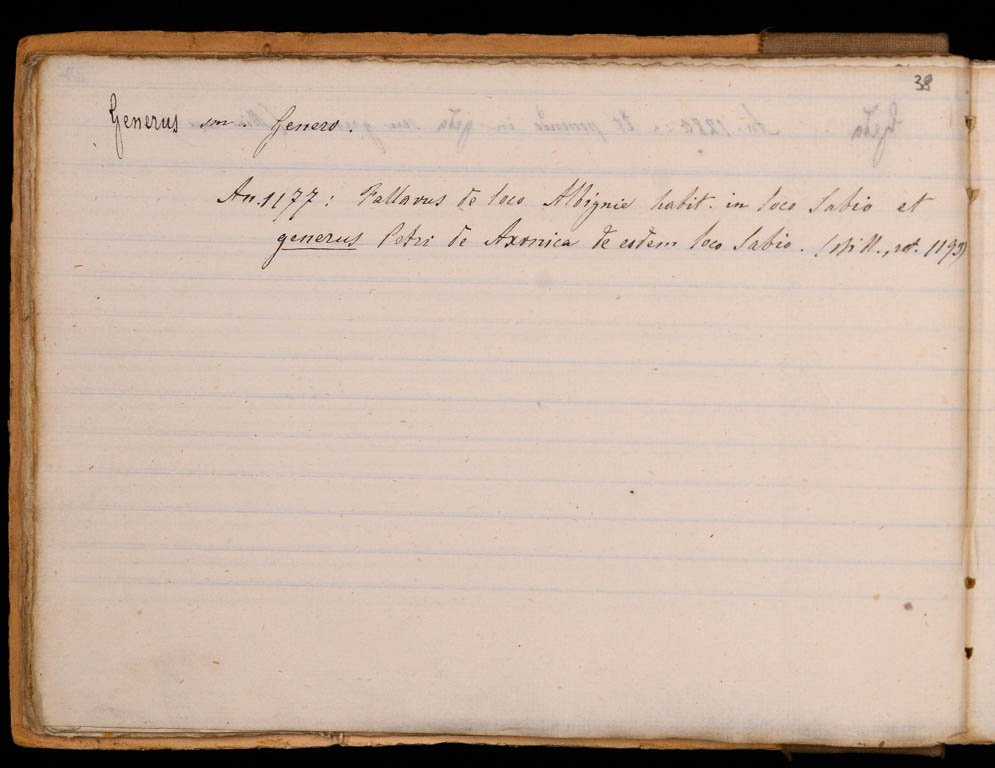 38
Generus sm. Genero.
An. 1177: Pallavus de loco Albignie habit. in loco Sabio et
generus Petri de Axonica de eodem loco Sabio. (ibi N., rot. 1193)